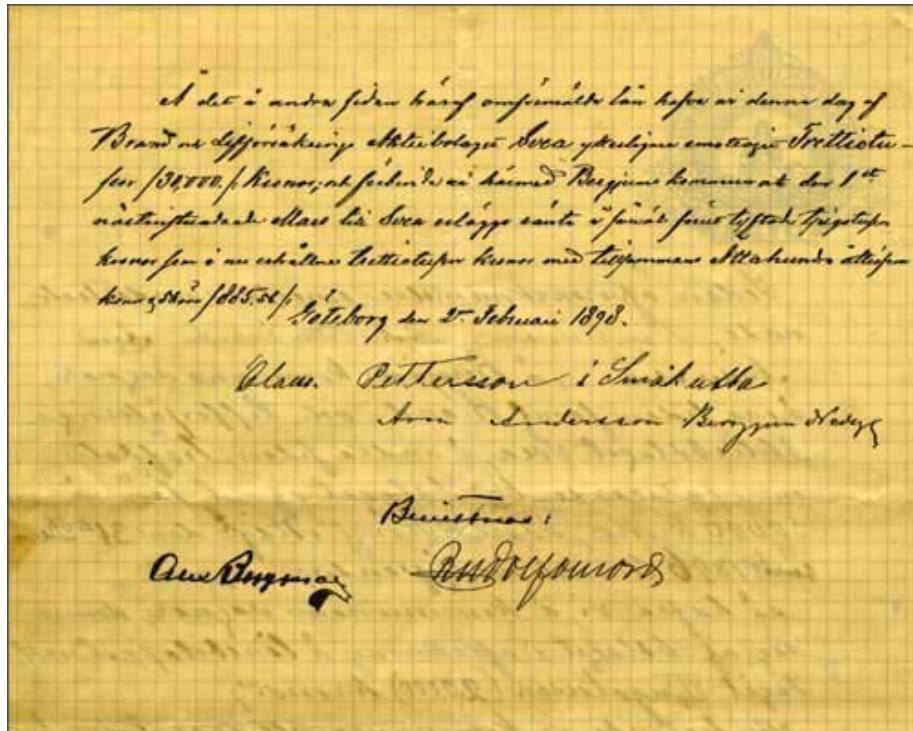 Å det å andra sidan häraf omförmälda lån hafva vi denna dag af
Brand och Lifförsäkrings Aktiebolaget Svea qvitterat Trettiotu-
sen /30,000./. Kronor, och förbinda vi härmed Bergums kommun att den 1st
nästinstundande Mars till Svea erlägga ränta å såväl förut lyftade
kronor som å nu erhållna trettiotusen kronor med tillsammans Åttahundra åttiofem
kronor 56 öre /885.56/.
Göteborg den 2n Februari 1898.
Claus. Pettersson i Småkulla
Aron Andersson Bergum Nedergd
Bevittnas:
Aug Bergman